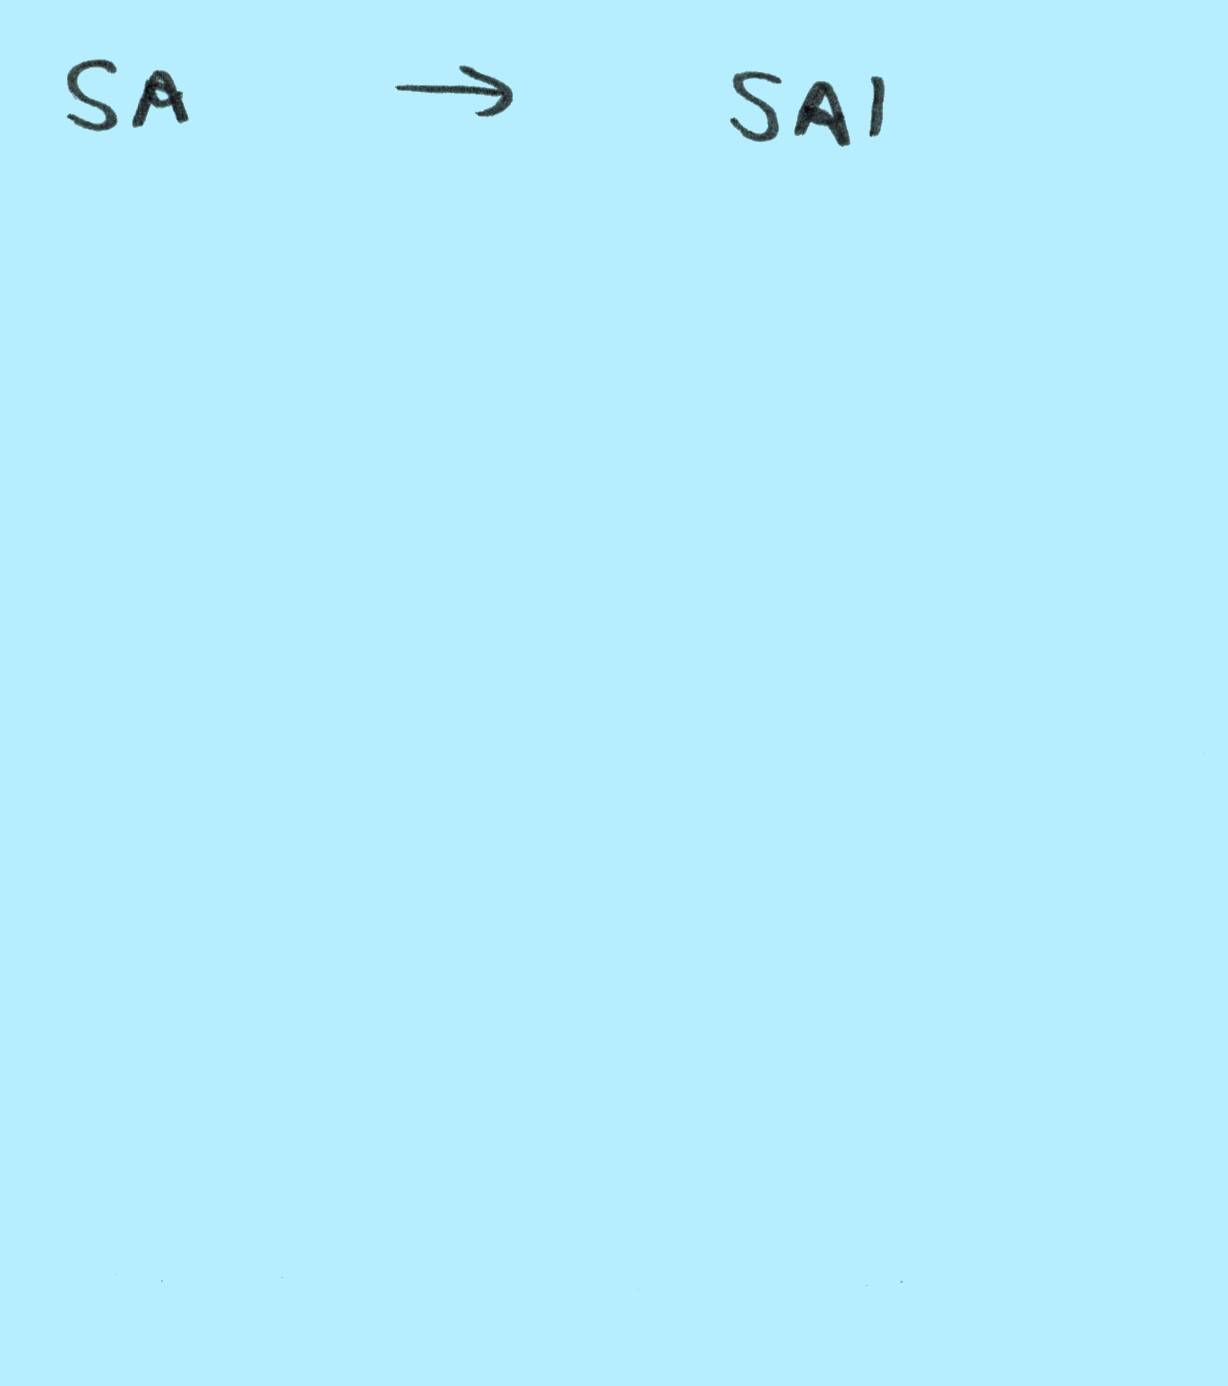 SA → SAI